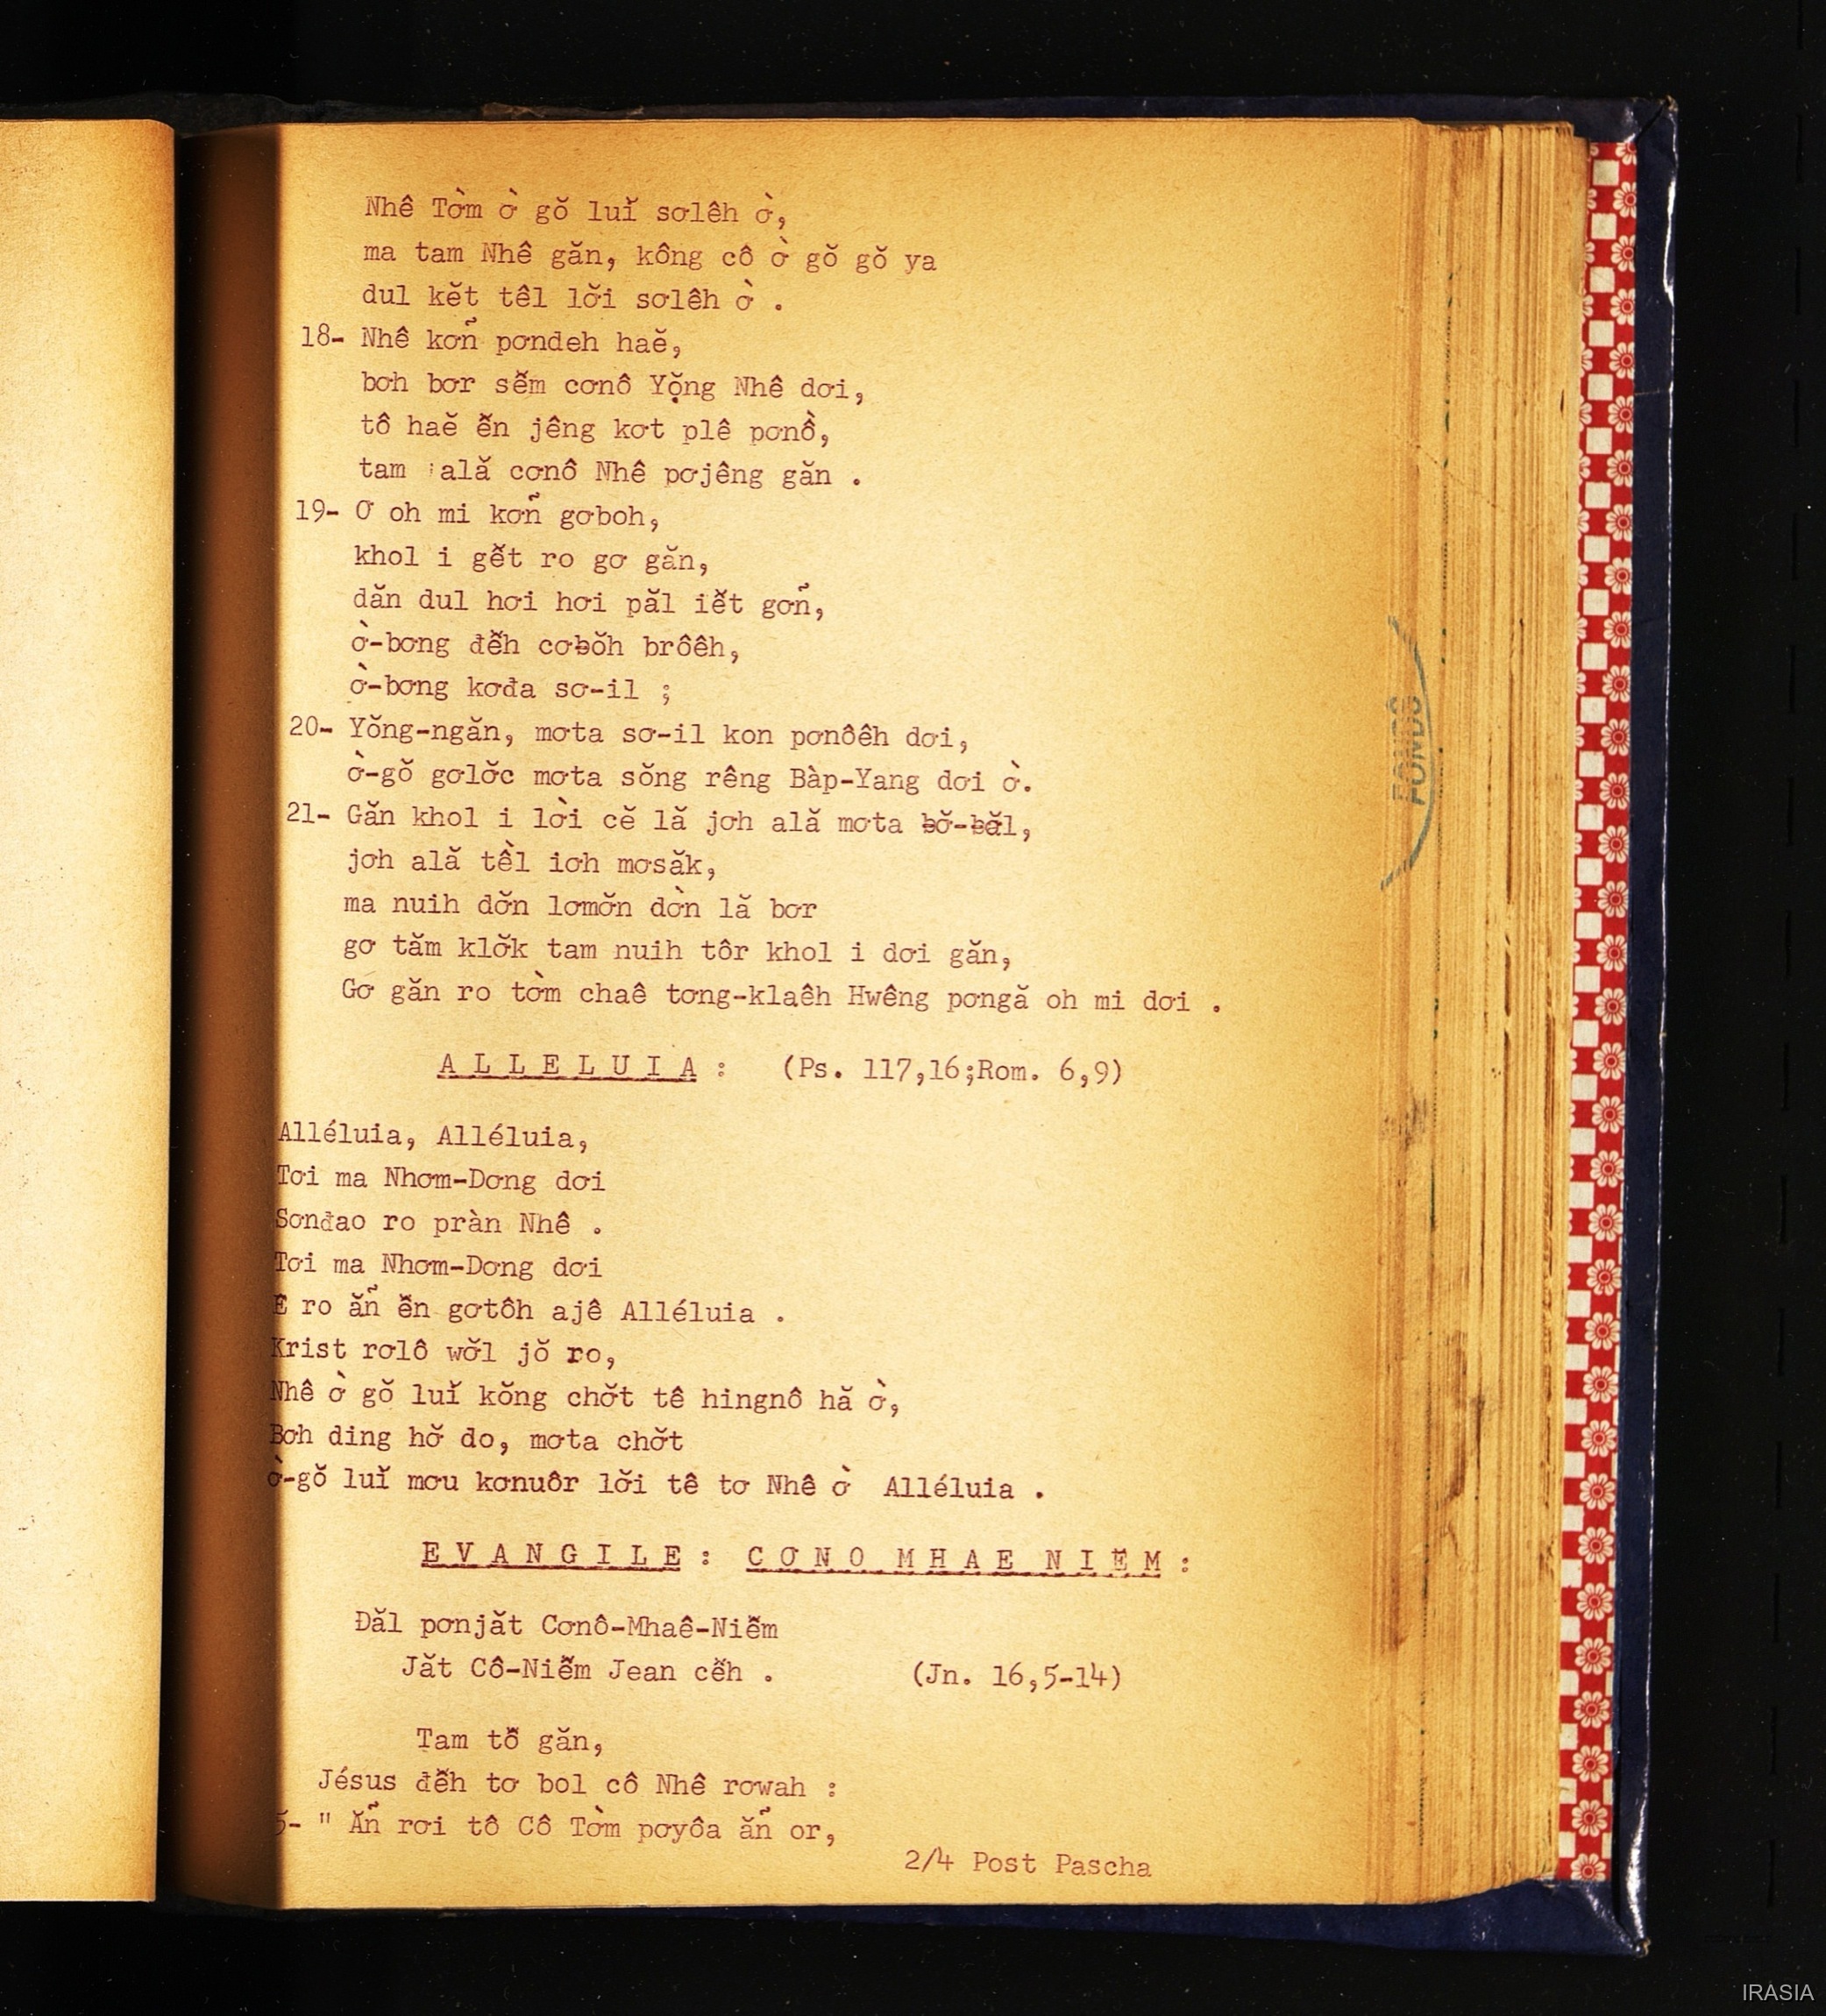 Nhê Tờm ờ gŏ luĭ sơlêh ờ,
ma tam Nhê găn, kông cô ờ gŏ gŏ ya
dul kĕt têl lơ̆i sơlêh ờ .
18- Nhê kơn̆̉ pơndeh haĕ,
bơh bơr sê̆m cơnô Yọ̆ng Nhê dơi,
tô haĕ ê̆n jêng kơt plê pơnồ,
tam ală cơnô Nhê pơjêng găn .
19- Ơ oh mi kơn̆̉ gơboh,
khol i gê̆t ro gơ găn,
dăn dul hơi hơi păl iê̆t gơn̆̉,
ờ-bơng đê̆h cơƀŏh brôêh,
ờ-bơng kơđa sơ-il ;
20- Yŏng-ngăn, mơta sơ-il kon pơnôêh dơi,
ờ-gŏ gơlơ̆c mơta sŏng rêng Bàp-Yang dơi ờ.
21- Găn khol i lời cĕ lă jơh ală mơta ƀơ̆-ƀăl,
jơh ală tềl iơh mơsăk,
ma nuih dơ̆n lơmơ̆n dờn lă bơr
gơ tăm klơ̆k tam nuih tôr khol i dơi găn,
Gơ găn ro tờm chaê tơng-klaêh Hwêng pơngă oh mi dơi .
A L L E L U I A : (Ps. 117,16;Rom. 6,9)
Alléluia, Alléluia,
Tơi ma Nhơm-Dơng dơi
Sơnđao ro pràn Nhê .
Tơi ma Nhơm-Dơng dơi
Ê ro ăn̉ ê̆n gơtôh ajê Alléluia .
Krist rơlô wơ̆l jŏ ro,
Nhê ờ gŏ luĭ kŏng chơ̆t tê hingnô hă ờ,
Bơh ding hơ̆ do, mơta chơ̆t
ờ-gŏ luĭ mơu kơnuôr lơ̆i tê tơ Nhê ờ Alléluia .
E V A N G I L E : C Ơ N O M H A E N I E M :
Đăl pơnjăt Cơnô-Mhaê-Niê̆m
Jăt Cô-Niê̆m Jean cê̆h . (Jn. 16,5-14)
Tam tô̆ găn,
Jésus đê̆h tơ bol cô Nhê rơwah :
5- " Ăn̉ rơi tô Cô Tờm pơyôa ăn̉ or,
2/4 Post Pascha
FONDS
IRASIA